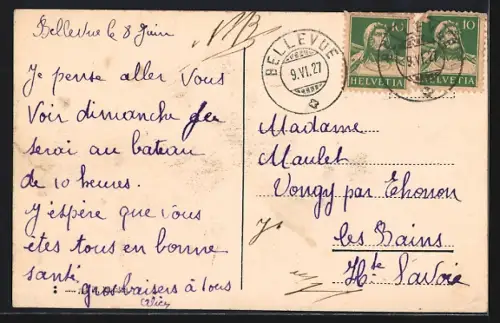 Bellevue le 8 Juin
Je pense aller Vous
Voir dimanche je
serai au bateau
de 10 heures.
J'espère que vous
êtes tous en bonne
santé
gros baisers à tous
BELLEVUE
9.VI.27
10
HELVETIA
10
9.VI.27
HELVETIA
Madame
Maulet
Vongy par Thonon
les Bains
Hte Savoie